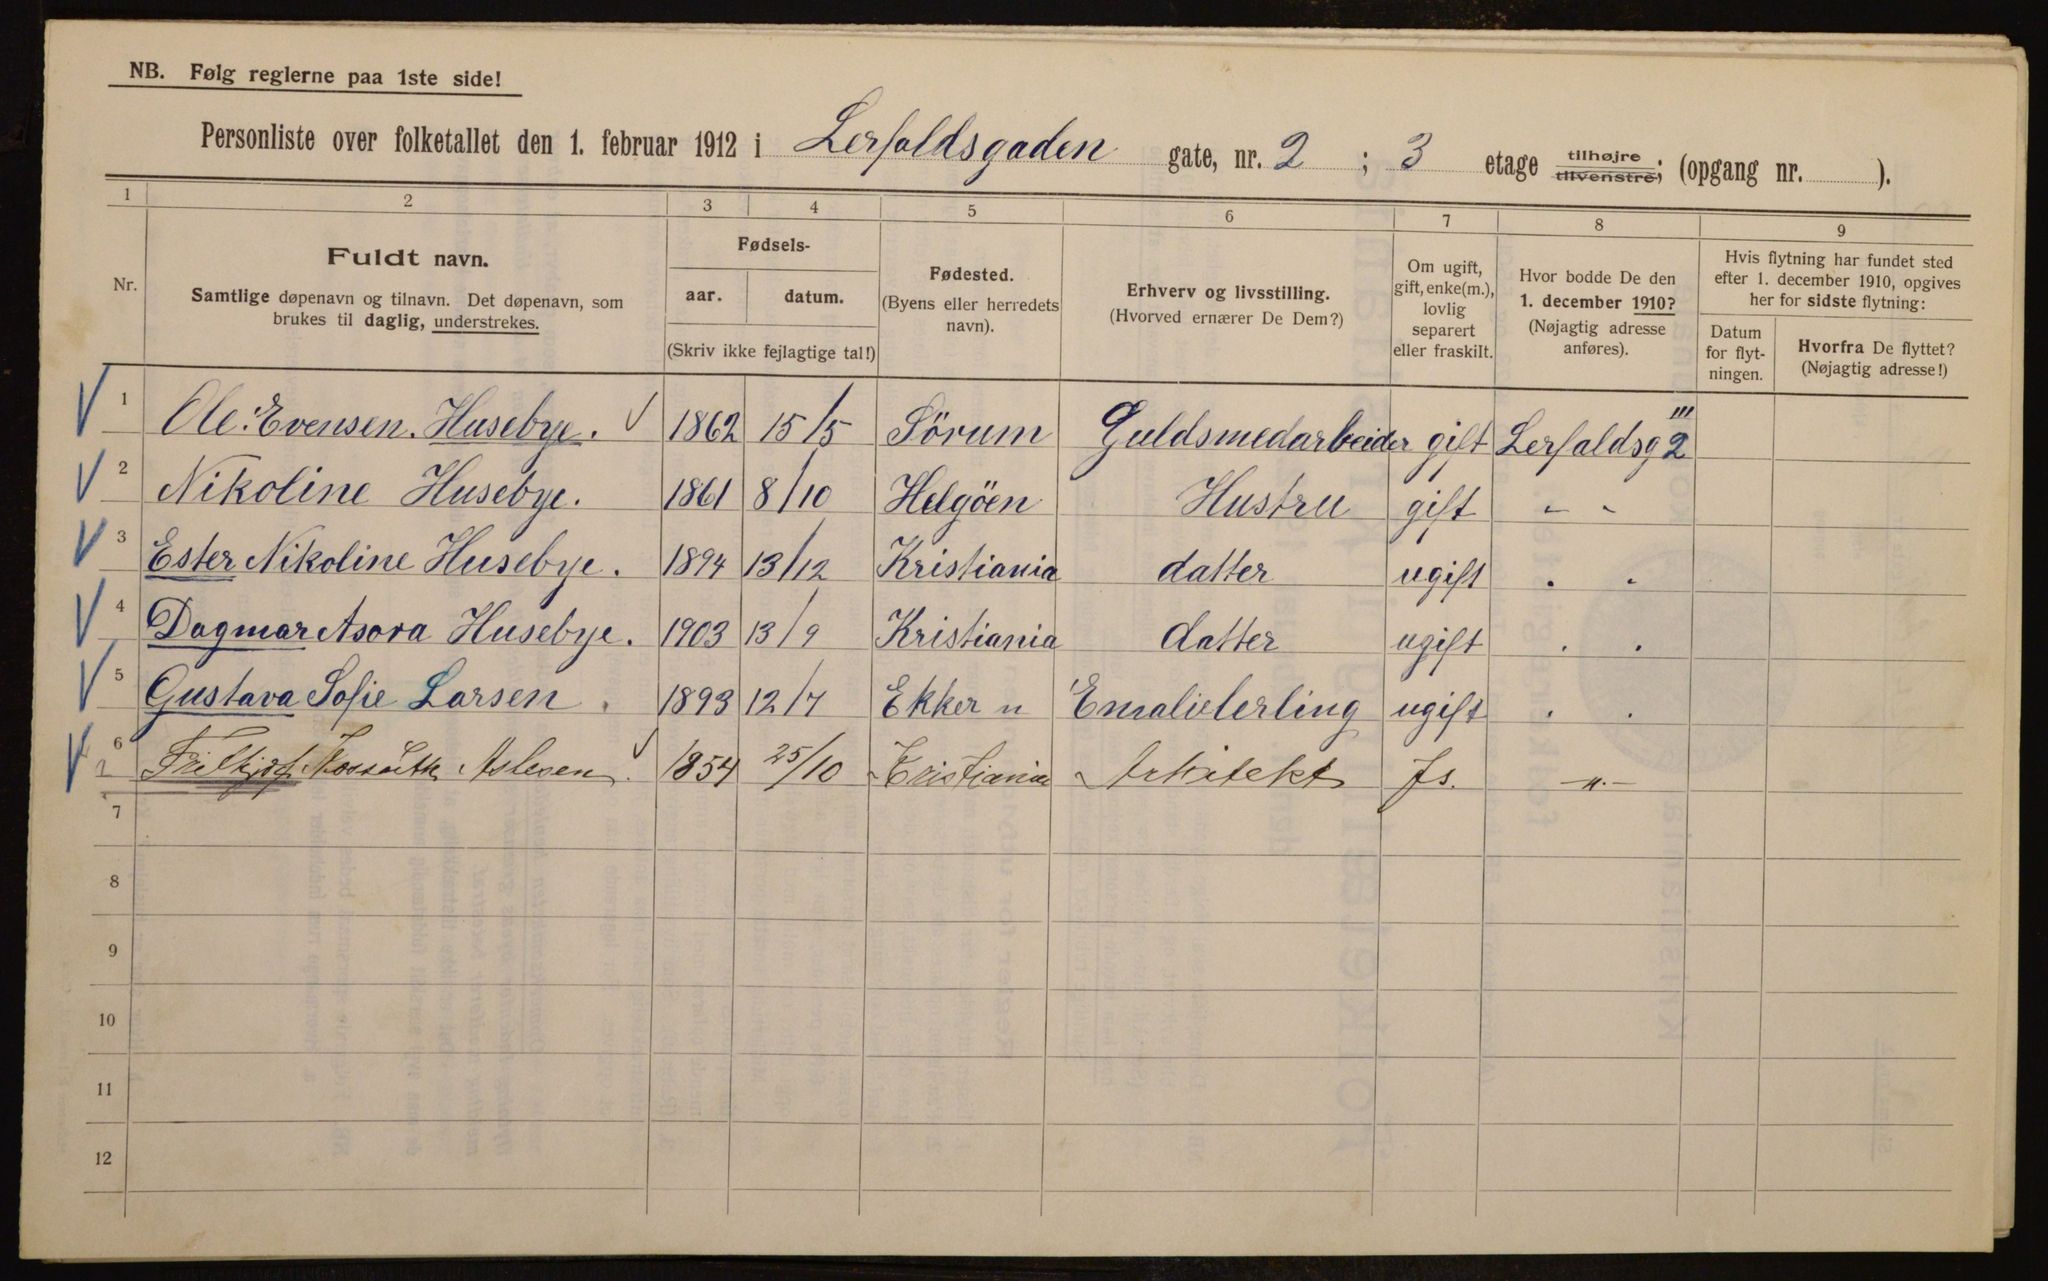 NB. Følg reglerne paa 1ste side!
Personliste over folketallet den 1. februar 1912 i Lerfaldsgaden gate, nr. 2 ; 3 etage tilhøjre tilvenstre; (opgang nr. ).
1 2 3 4 5 6 7 8 9
Nr.
Fuldt navn.
Samtlige døpenavn og tilnavn. Det døpenavn, som
brukes til daglig, understrekes.
Fødsels-
aar. datum.
(Skriv ikke fejlagtige tal!)
Fødested.
(Byens eller herredets
navn).
Erhverv og livsstilling.
(Hvorved ernærer De Dem?)
Om ugift,
gift, enke(m.),
lovlig
separert
eller fraskilt.
Hvor bodde De den
1. december 1910?
(Nøjagtig adresse
anføres).
Hvis flytning har fundet sted
efter 1. december 1910, opgives
her for sidste flytning:
Datum
for flyt-
ningen.
Hvorfra De flyttet?
(Nøjagtig adresse!)
1 Ole Evensen. Husebye. 1862 15/5 Sörum Guldsmedarbeider gift Lerfaldsg 2 III
2 Nikoline Husebye. 1861 8/10 Helgöen Hustru gift " "
3 Ester Nikoline Husebye. 1894 13/12 Kristiania datter ugift " "
4 Dagmar Asora Husebye. 1903 13/9 Kristiania datter ugift " "
5 Gustava Sofie Larsen. 1893 12/7 Ekker n Emalielerling ugift " "
6 Fridtjof Aslesen 1854 25/10 Kristiania Arkitekt fs. -"-
7
8
9
10
11
12